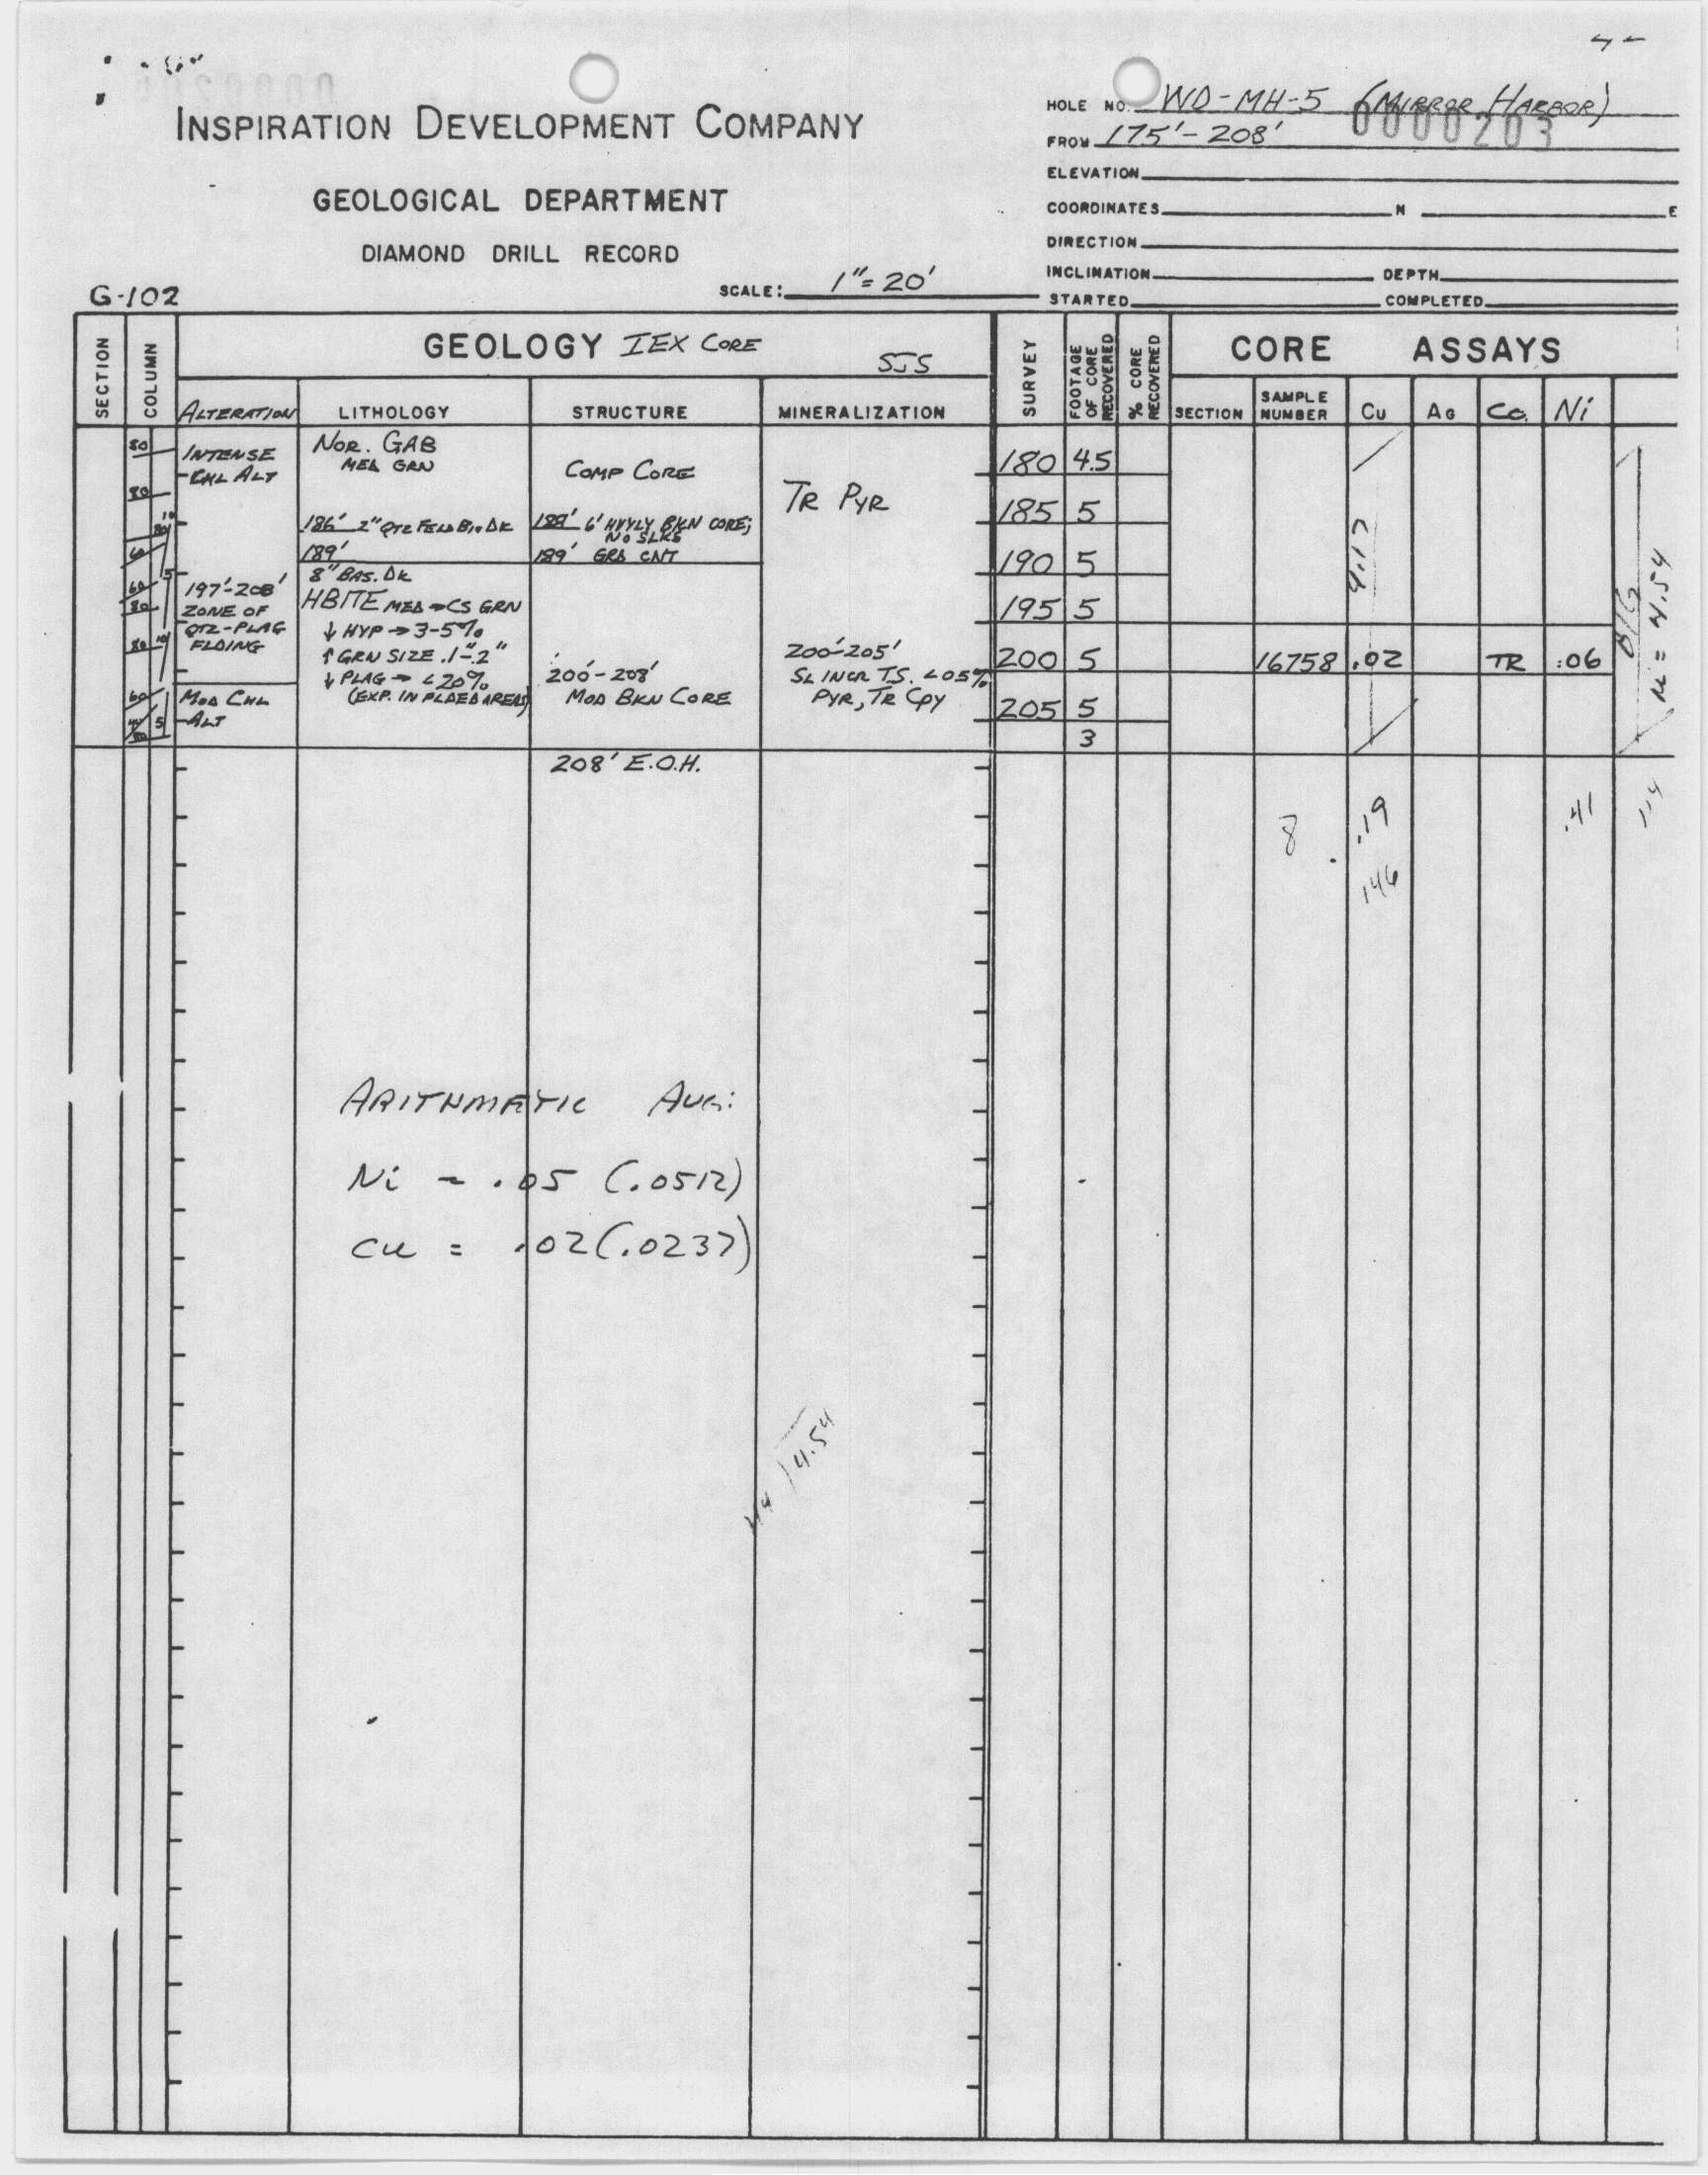 INSPIRATION DEVELOPMENT COMPANY
GEOLOGICAL DEPARTMENT
DIAMOND DRILL RECORD
G-102
SCALE: 1"=20'
HOLE NO. WD-MH-5 (MIRROR HARBOR)
0000203
FROM 175'-208'
ELEVATION
COORDINATES N E
DIRECTION
INCLINATION DEPTH
STARTED COMPLETED
SECTION COLUMN GEOLOGY IEX CORE SJS SURVEY FOOTAGE OF CORE RECOVERED % CORE RECOVERED CORE ASSAYS
ALTERATION LITHOLOGY STRUCTURE MINERALIZATION SECTION SAMPLE NUMBER CU AG Co. Ni
INTENSE
-CHL ALT
197'-208'
ZONE OF
QTZ-PLAG
FLDING
MOD CHL
-ALT
NOR. GAB
MED GRN
186' 2" QTZ FELD BIO DK
189'
8" BAS. DK
HBITE MED→CS GRN
↓ HYP → 3-5%
↑ GRN SIZE .1"-.2"
↓ PLAG → <20%
COMP CORE
188' 6' HVYLY BKN CORE;
NO SLKS
189' GRD CNT
200'-208'
MOD BKN CORE
208' E.O.H.
TR PYR
200'-205'
SL INCR T.S. <05%
PYR, TR CPY
180 4.5
185 5
190 5
195 5
200 5 16758 .02 TR .06
205 5
3
4.17
Ni = 4.54
8 .19 .41 114
146
ARITHMETIC AVG:
Ni - .05 (.0512)
CU = .02 (.0237)
4.54